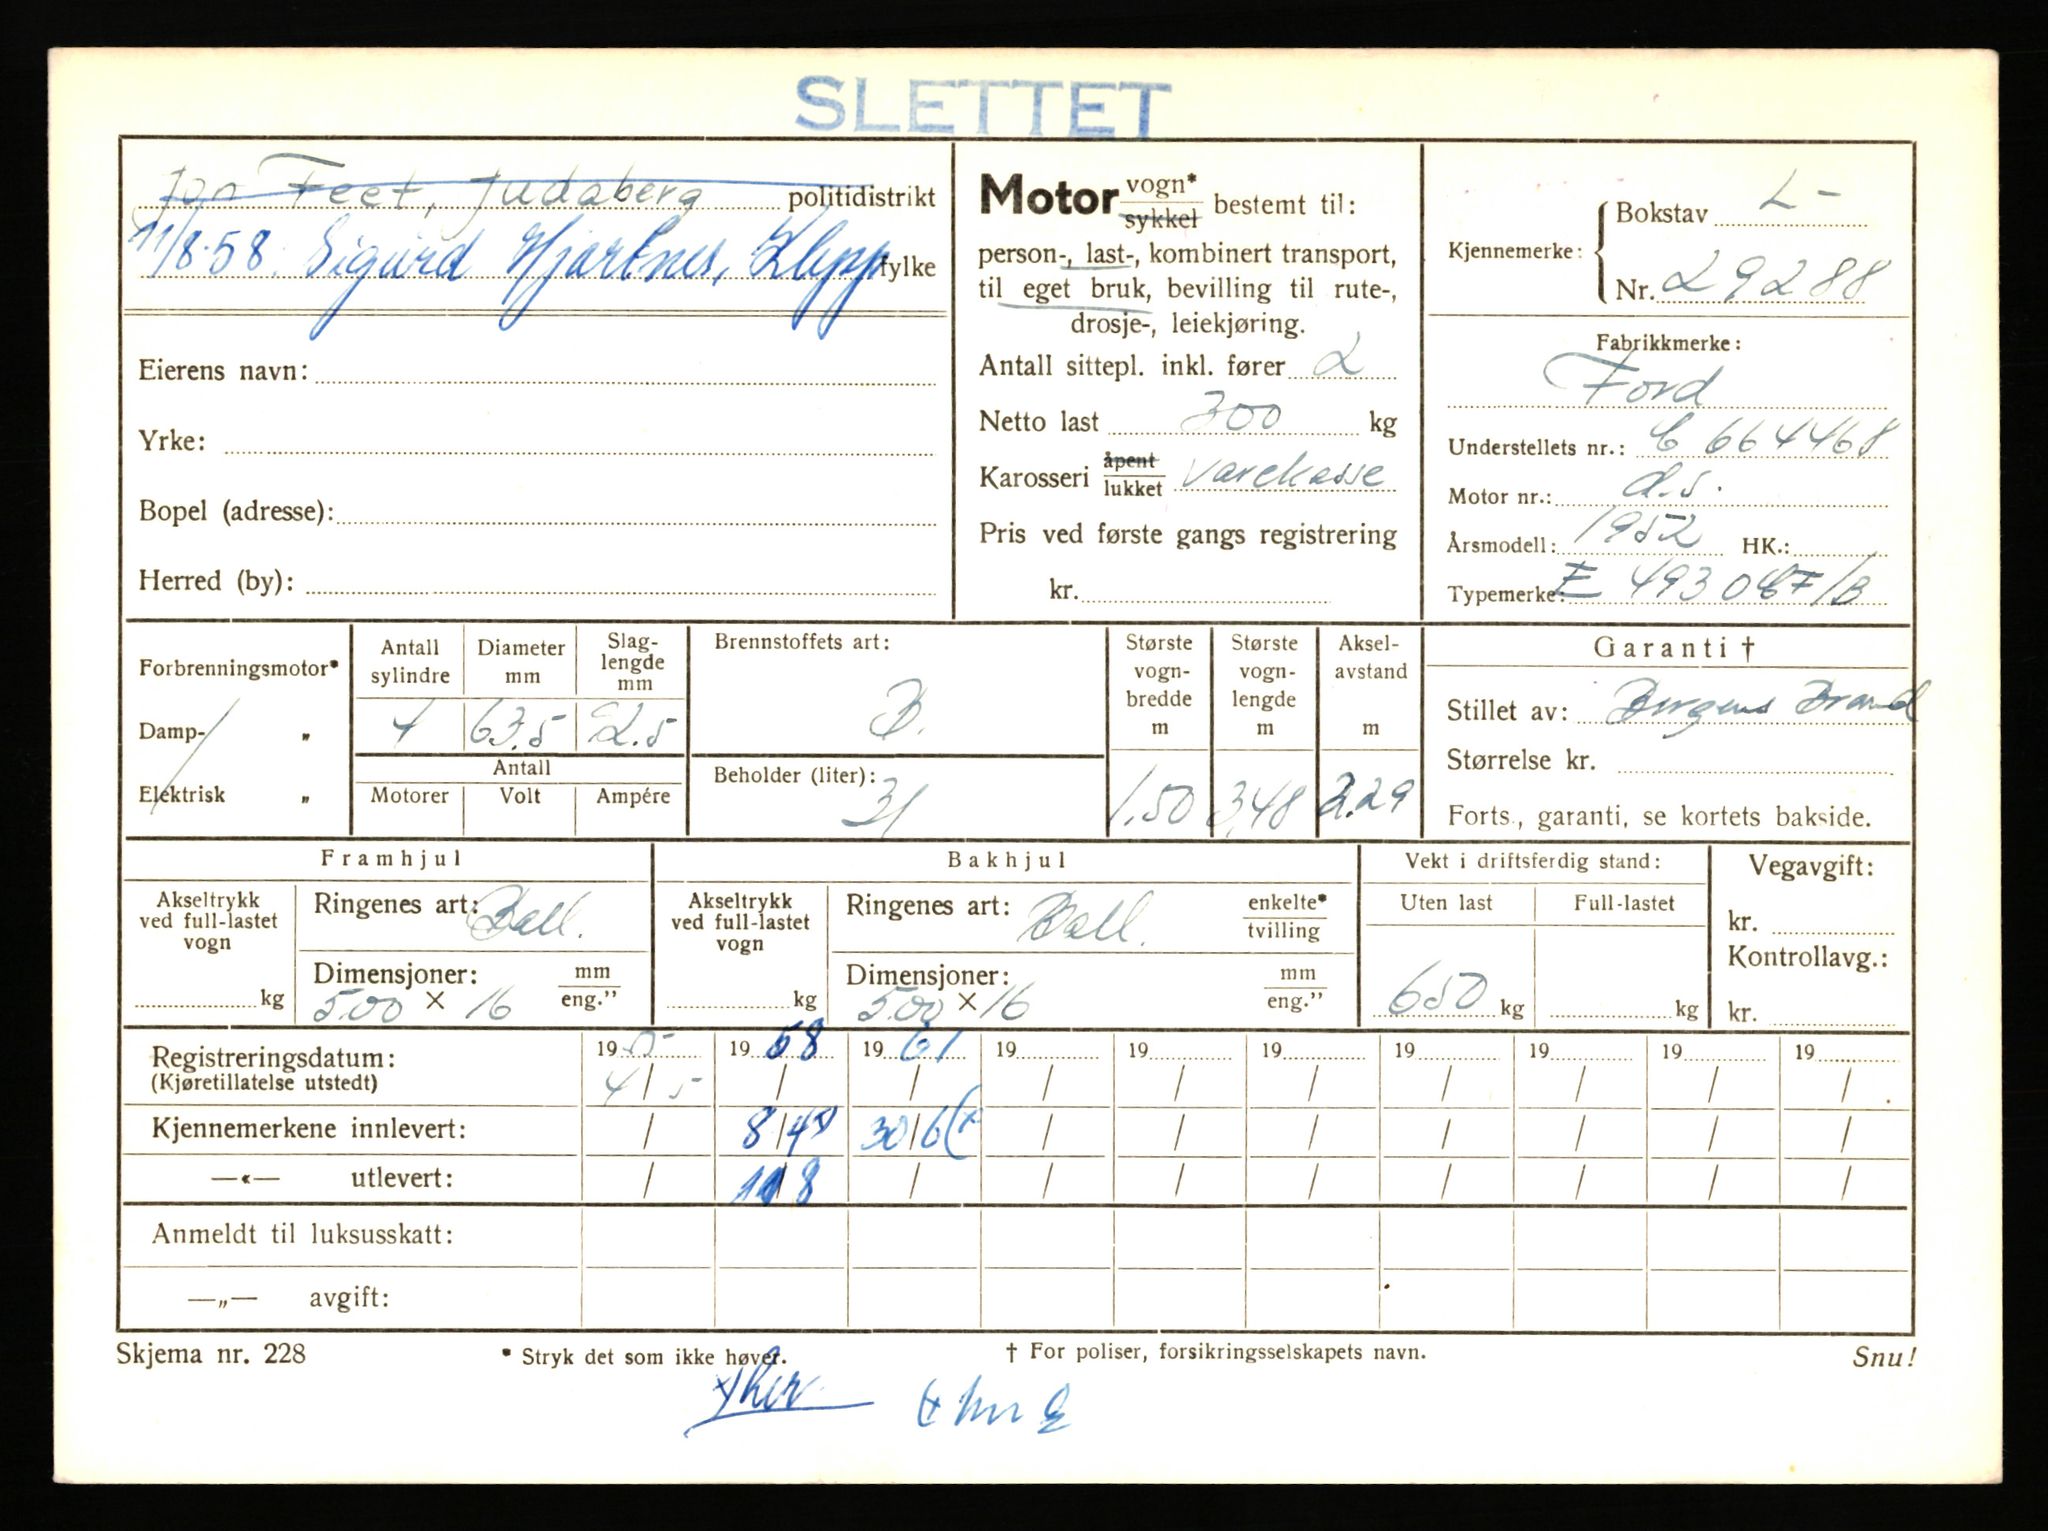 SLETTET
Jon Feet, Judaberg politidistrikt
11/8-58. Sigurd Hjartnes, Klepp fylke
Eierens navn:
Yrke:
Bopel (adresse):
Herred (by):
Motor vogn* sykkel bestemt til:
person-, last-, kombinert transport,
til eget bruk, bevilling til rute-,
drosje-, leiekjøring.
Antall sittepl. inkl. fører 2
Netto last 300 kg
Karosseri åpent lukket varekasse
Pris ved første gangs registrering
kr.
Kjennemerke:
Bokstav L-
Nr. 29288
Fabrikkmerke:
Ford
Understellets nr.: C 664468
Motor nr.: d.s.
Årsmodell: 1952 HK.:
Typemerke: E 493
Forbrenningsmotor*
Damp- „
Elektrisk „
Antall sylindre
Diameter mm
Slag-lengde mm
4 63.5 92.5
Antall
Motorer Volt Ampére
Brennstoffets art:
B.
Beholder (liter):
31
Største vogn-bredde m
1.50
Største vogn-lengde m
3,48
Aksel-avstand m
2.29
Garanti †
Stillet av: Bergens Brand
Størrelse kr.
Forts., garanti, se kortets bakside.
Framhjul
Akseltrykk ved full-lastet vogn
kg
Ringenes art: Ball.
Dimensjoner: mm eng.”
5.00 × 16
Bakhjul
Akseltrykk ved full-lastet vogn
kg
Ringenes art: Ball. enkelte* tvilling
Dimensjoner: mm eng.”
5.00 × 16
Vekt i driftsferdig stand:
Uten last Full-lastet
650 kg kg
Vegavgift:
kr.
Kontrollavg.:
kr.
Registreringsdatum: 19 5- 19 58 19 61 19 19 19 19 19 19 19
(Kjøretillatelse utstedt) 4/5 / / / / / / / / /
Kjennemerkene innlevert: / 8/4 30/6 (x / / / / / / /
—«— utlevert: / 11/8 / / / / / / / /
Anmeldt til luksusskatt:
—„— avgift:
Skjema nr. 228
* Stryk det som ikke høver.
† For poliser, forsikringsselskapets navn.
Snu!